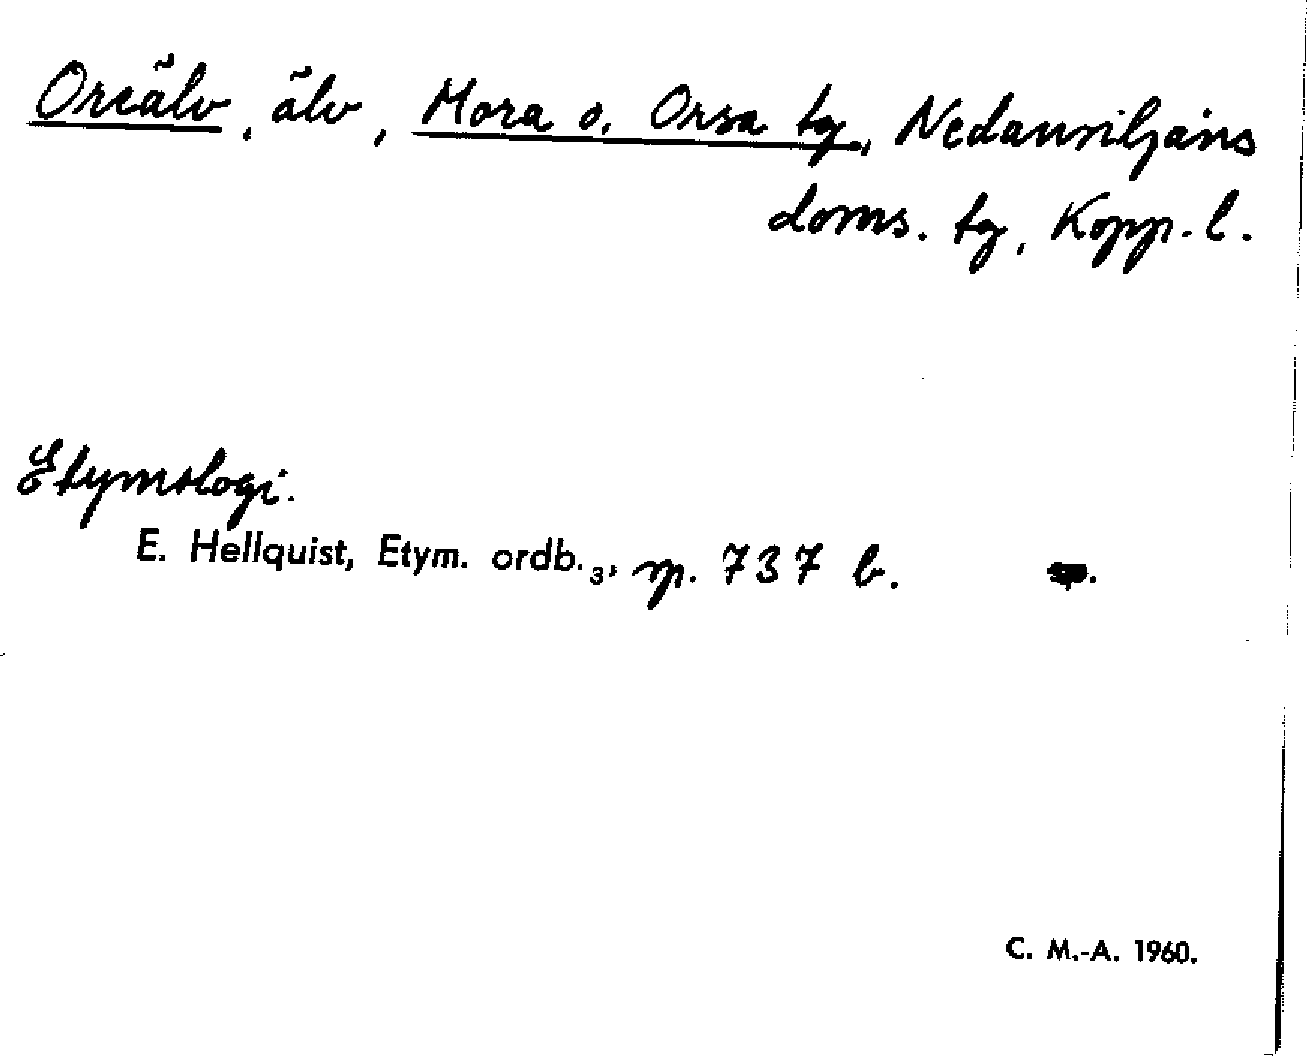 Oreälv, älv, Mora o. Orsa tg, Nedansiljans
doms. tg, Kopp. l.
Etymologi.
E. Hellquist, Etym. ordb.₃, sp. 737 b.
C. M.-A. 1960.